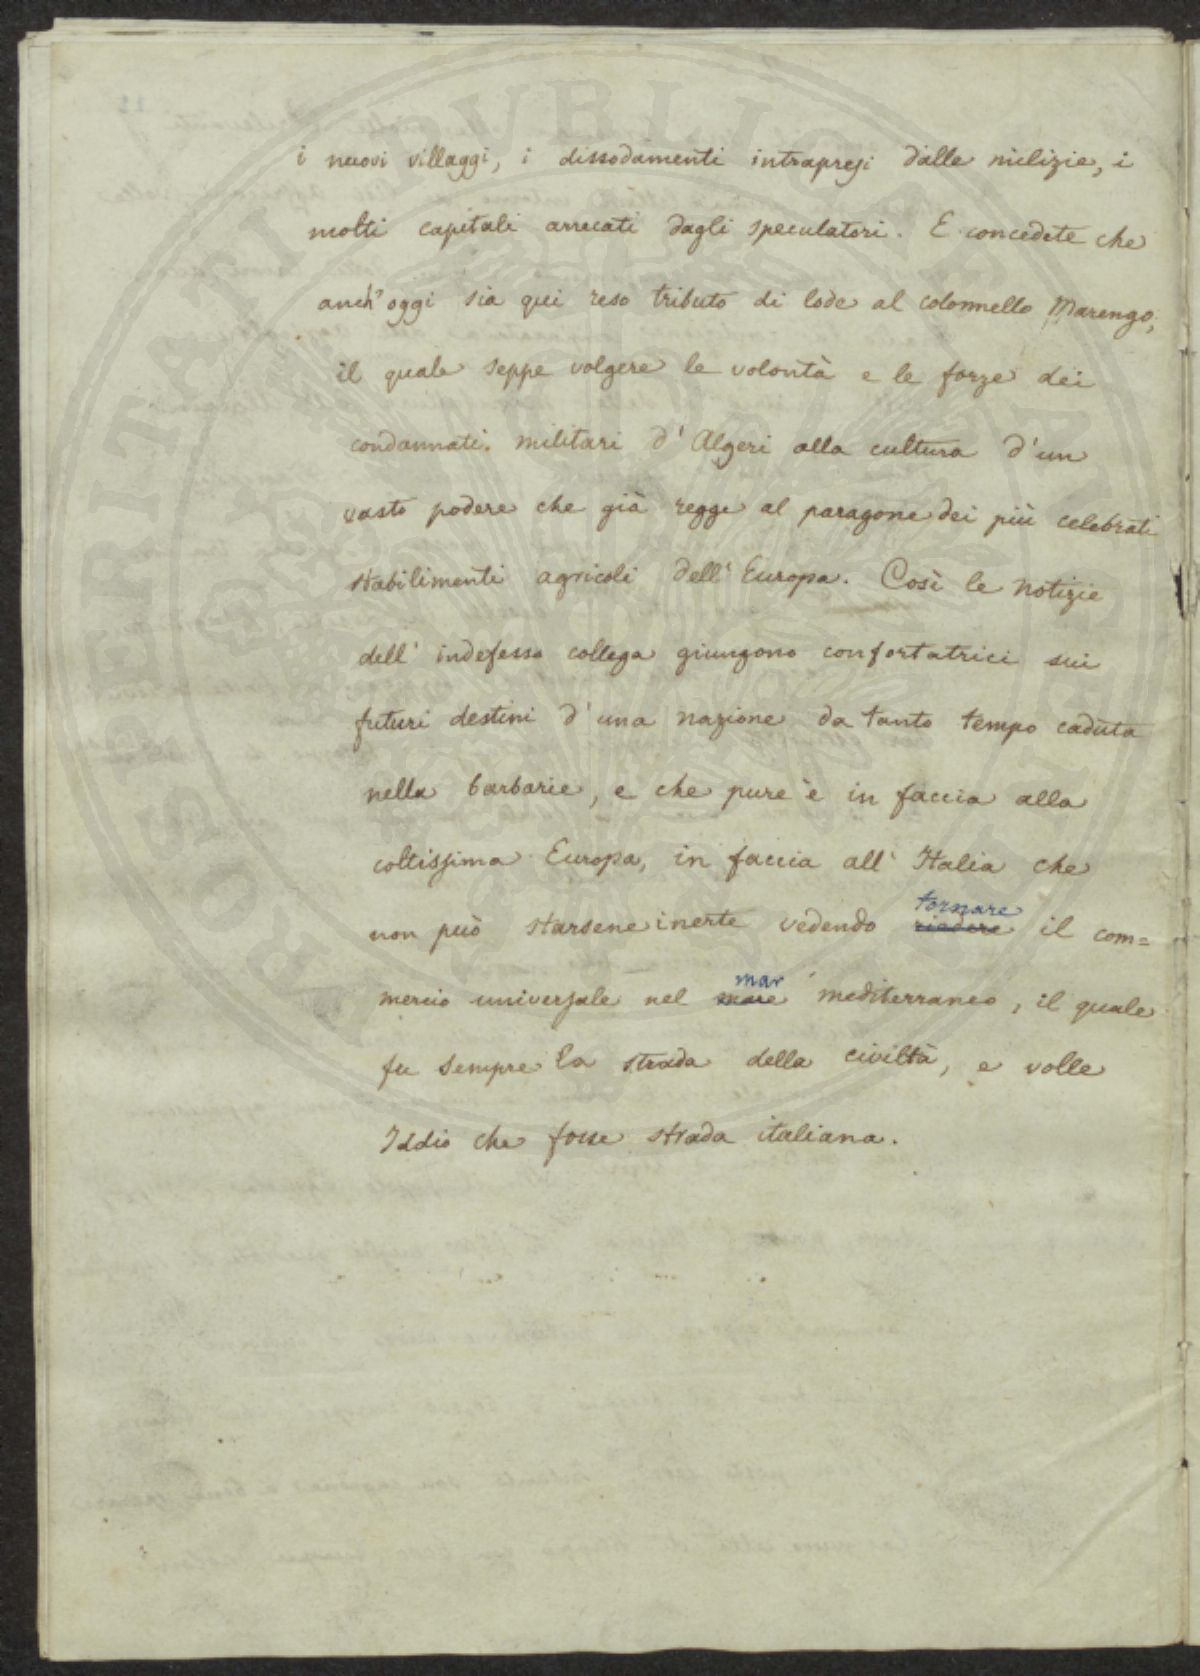 i nuovi villaggi, i dissodamenti intrapresi dalle milizie, i
molti capitali arrecati dagli speculatori. E concedete che
anch'oggi sia qui reso tributo di lode al colonnello Marengo,
il quale seppe volgere le volontà e le forze dei
condannati militari d'Algeri alla cultura d'un
vasto podere che già regge al paragone dei più celebrati
stabilimenti agricoli dell'Europa. Così le notizie
dell'indefesso collega giungono confortatrici sui
futuri destini d'una nazione da tanto tempo caduta
nella barbarie, e che pure è in faccia alla
coltissima Europa, in faccia all'Italia che
tornare
non può starsene inerte vedendo riedere il com=
mar
mercio universale nel mare mediterraneo, il quale
fu sempre la strada della civiltà, e volle
Iddio che fosse strada italiana.